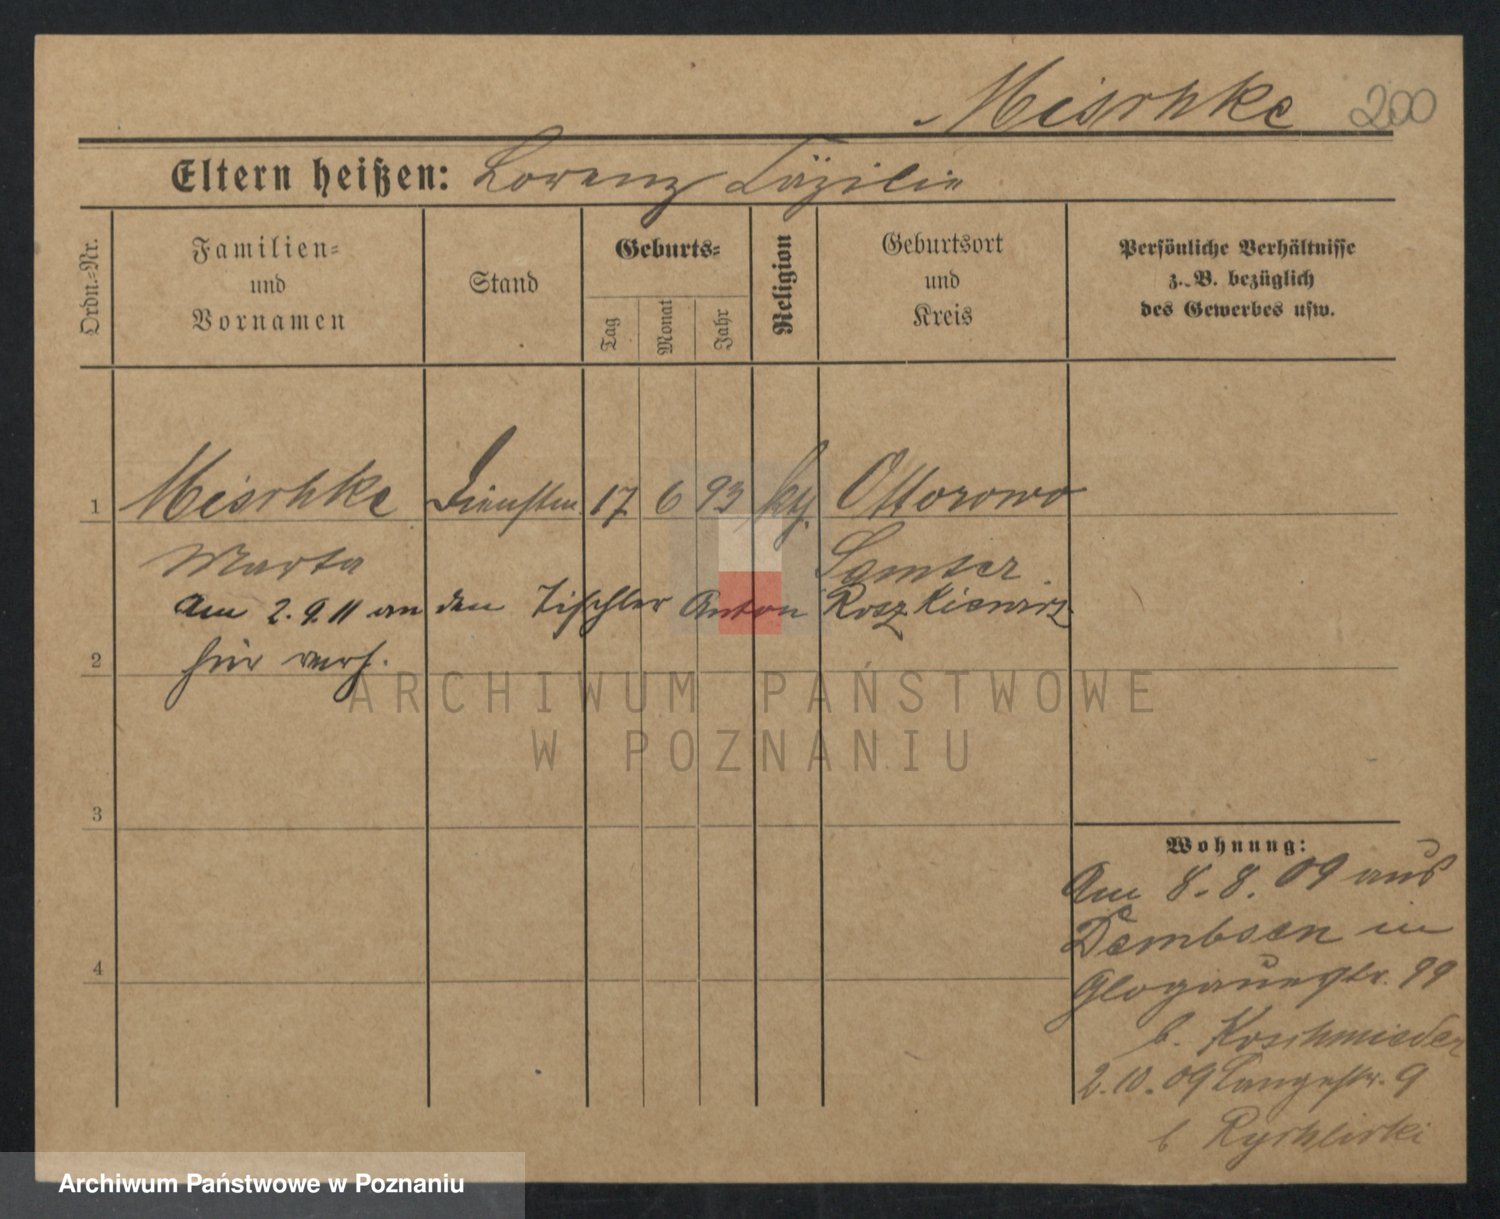 Mischke 200
Eltern heißen: Lorenz Cäzilie
Ordn.=Nr.
Familien=
und
Vornamen
Stand
Geburts=
Tag
Monat
Jahr
Religion
Geburtsort
und
Kreis
Persönliche Verhältnisse
z. B. bezüglich
des Gewerbes usw.
1 Mischke Dienstm. 17 6 93 kg. Ottorowo
Marta Samter
am 2.9.11 an den Tischler Anton Roszkiewicz
2 hier verh.
ARCHIWUM PAŃSTWOWE
W POZNANIU
3
Wohnung:
Am 8.8.09 aus
Dembsen in
4 Glogauerstr. 99
b. Koschmieder
2.10.09 Langestr. 9
b Rychlicki
Archiwum Państwowe w Poznaniu